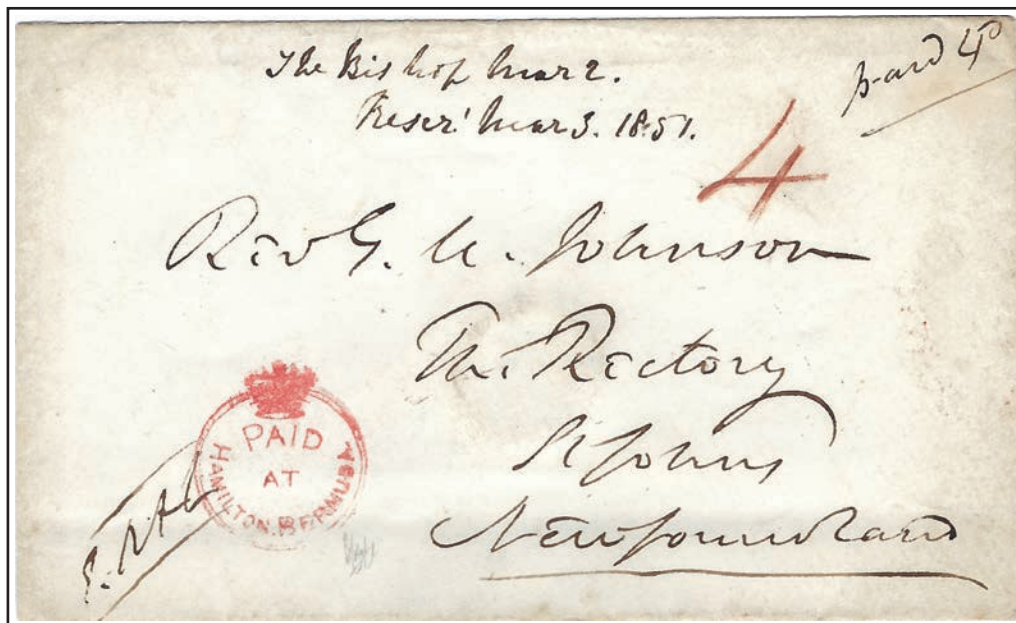 The Bishop Mar 2.
Paid 4D
Recd. Mar 3. 1851.
4
Rev G. M. Johnson
The Rectory
St Johns
Newfoundland
PAID
AT
HAMILTON. BERMUDA